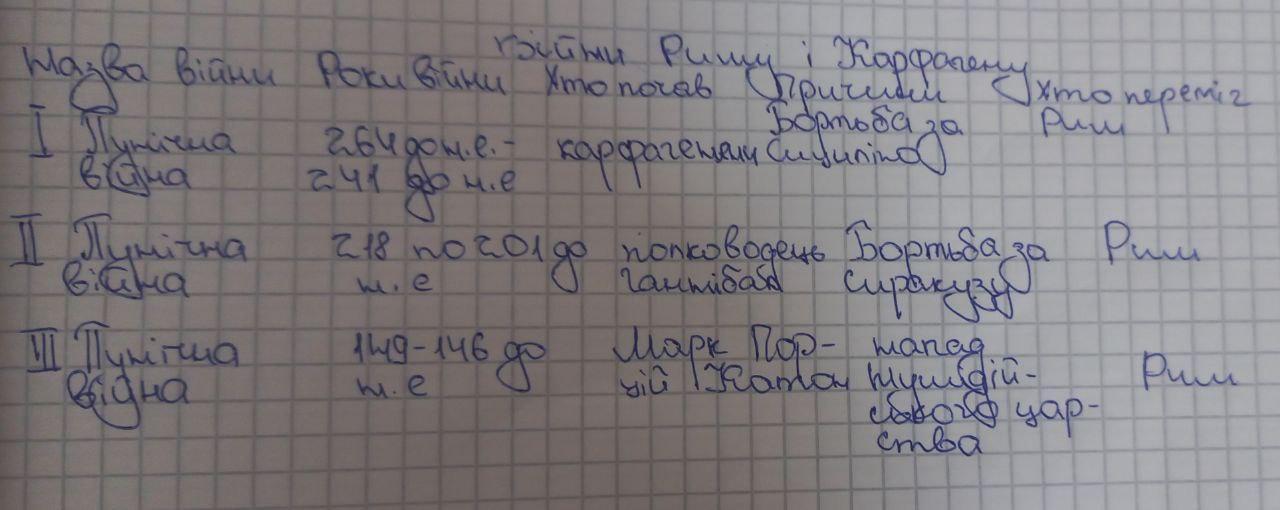 війни Риму і Карфагену
Назва війни Роки війни Хто почав Причини Хто переміг
Боротьба за Рим
I Пунічна 264 до н.е.- карфагеняни Сицилію
війна 241 до н.е
II Пунічна 218 по 201 до полководець Боротьба за Рим
війна н.е Ганнібал Сиракузу
III Пунічна 149-146 до Марк Пор- напад
війна н.е цій Катон Нумідій- Рим
ського цар-
ства